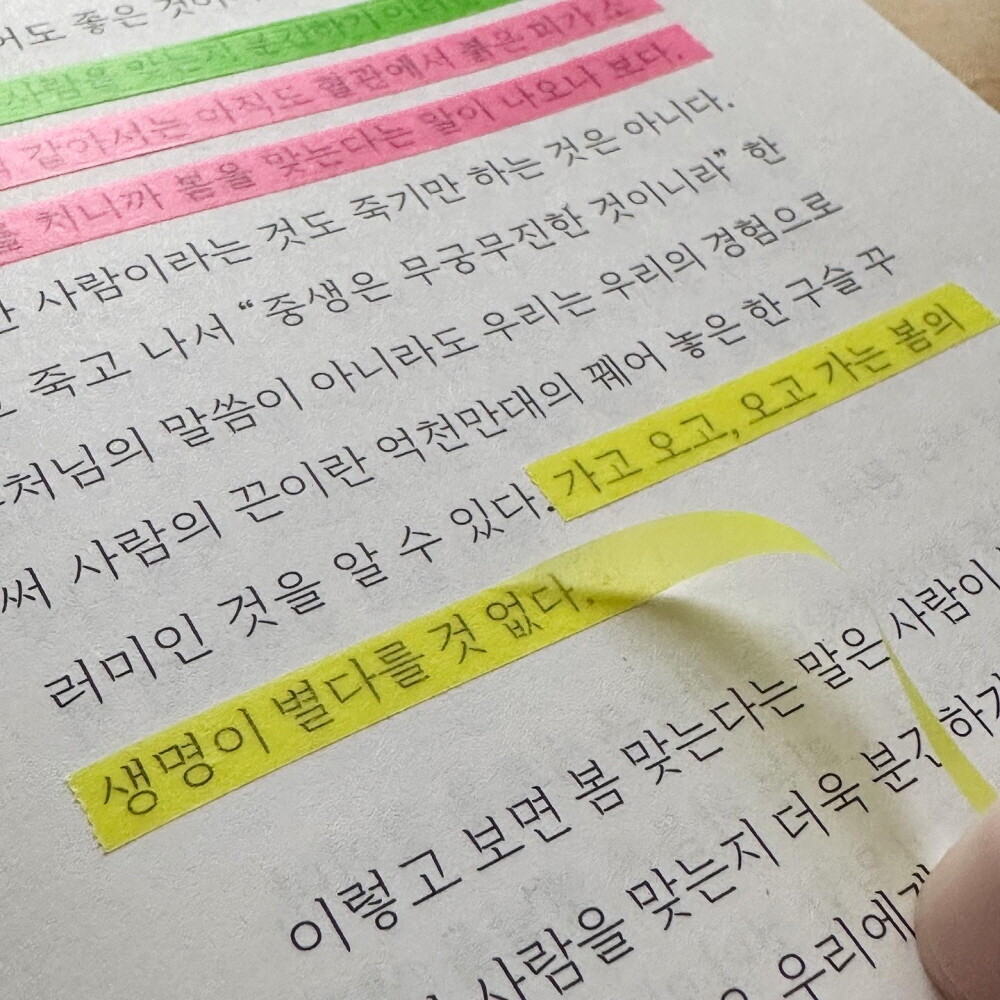 어도 좋은 것이
사람을 맞는지 분간하기 어려
같아서는 아직도 혈관에서 붉은 피가 소
를 치니까 봄을 맞는다는 말이 나오나 보다.
사람이라는 것도 죽기만 하는 것은 아니다.
죽고 나서 “중생은 무궁무진한 것이니라” 한
처님의 말씀이 아니라도 우리는 우리의 경험으로
써 사람의 끈이란 억천만대의 꿰어 놓은 한 구슬 꾸
러미인 것을 알 수 있다. 가고 오고, 오고 가는 봄의
생명이 별다를 것 없다.
이렇고 보면 봄 맞는다는 말은 사람이
사람을 맞는지 더욱 분간하기
우리에게